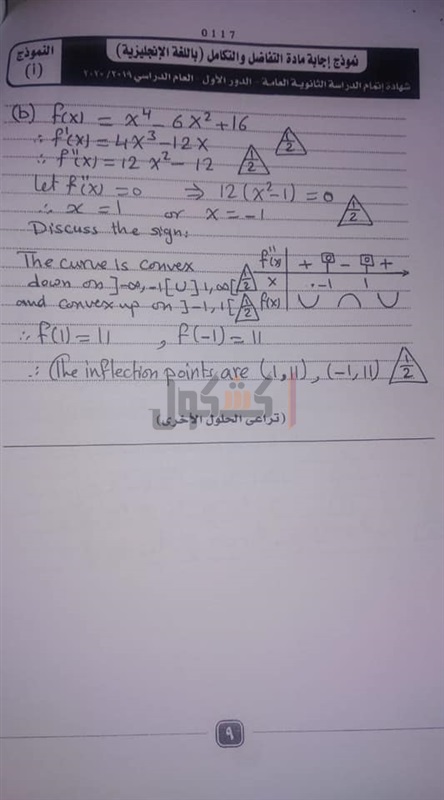 0117
نموذج إجابة مادة التفاضل والتكامل (باللغة الإنجليزية)
النموذج
(أ)
شهادة إتمام الدراسة الثانوية العامة - الدور الأول - العام الدراسي ٢٠٢٠/٢٠١٩
(b) f(x) = x⁴ - 6x² + 16
∴ f'(x) = 4x³ - 12x 1/2
∴ f''(x) = 12x² - 12 1/2
Let f''(x) = 0 ⇒ 12(x² - 1) = 0
∴ x = 1 or x = -1 1/2
Discuss the sign:
The curve is convex
down on ]-∞, -1[ ∪ ]1, ∞[ 1/2
and convex up on ]-1, 1[ 1/2
f''(x) + 0 - 0 +
x -1 1
f(x) ∪ ∩ ∪
∴ f(1) = 11 , f(-1) = 11
∴ The inflection points are (1, 11), (-1, 11) 1/2
كشكول
(تراعى الحلول الأخرى)
٩